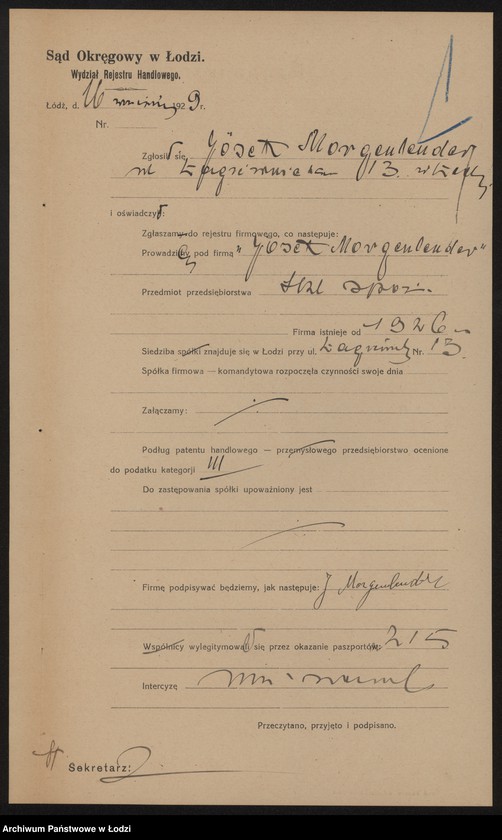 Sąd Okręgowy w Łodzi.
Wydział Rejestru Handlowego.
Łódź, d. 16 września 1929 r.
Nr.
Zgłosił się Josek Morgenlender
13.
i oświadczył
Zgłaszam do rejestru firmowego, co następuje:
Prowadzimy pod firmą "Josek Morgenlender"
Przedmiot przedsiębiorstwa skl. spoż.
Firma istnieje od 1926
Siedziba spółki znajduje się w Łodzi przy ul. Nr. 13.
Spółka firmowa — komandytowa rozpoczęła czynności swoje dnia
Załączamy:
Podług patentu handlowego — przemysłowego przedsiębiorstwo ocenione
do podatku kategorji III
Do zastępowania spółki upoważniony jest
Firmę podpisywać będziemy, jak następuje: J Morgenlender
Wspólnicy wylegitymowali się przez okazanie paszportów: 215
Intercyzę nie zawarł
Przeczytano, przyjęto i podpisano.
Sekretarz:
Archiwum Państwowe w Łodzi